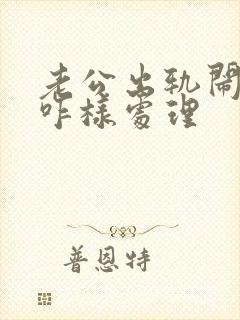 老公出轨闹
咋樣處理
普恩特